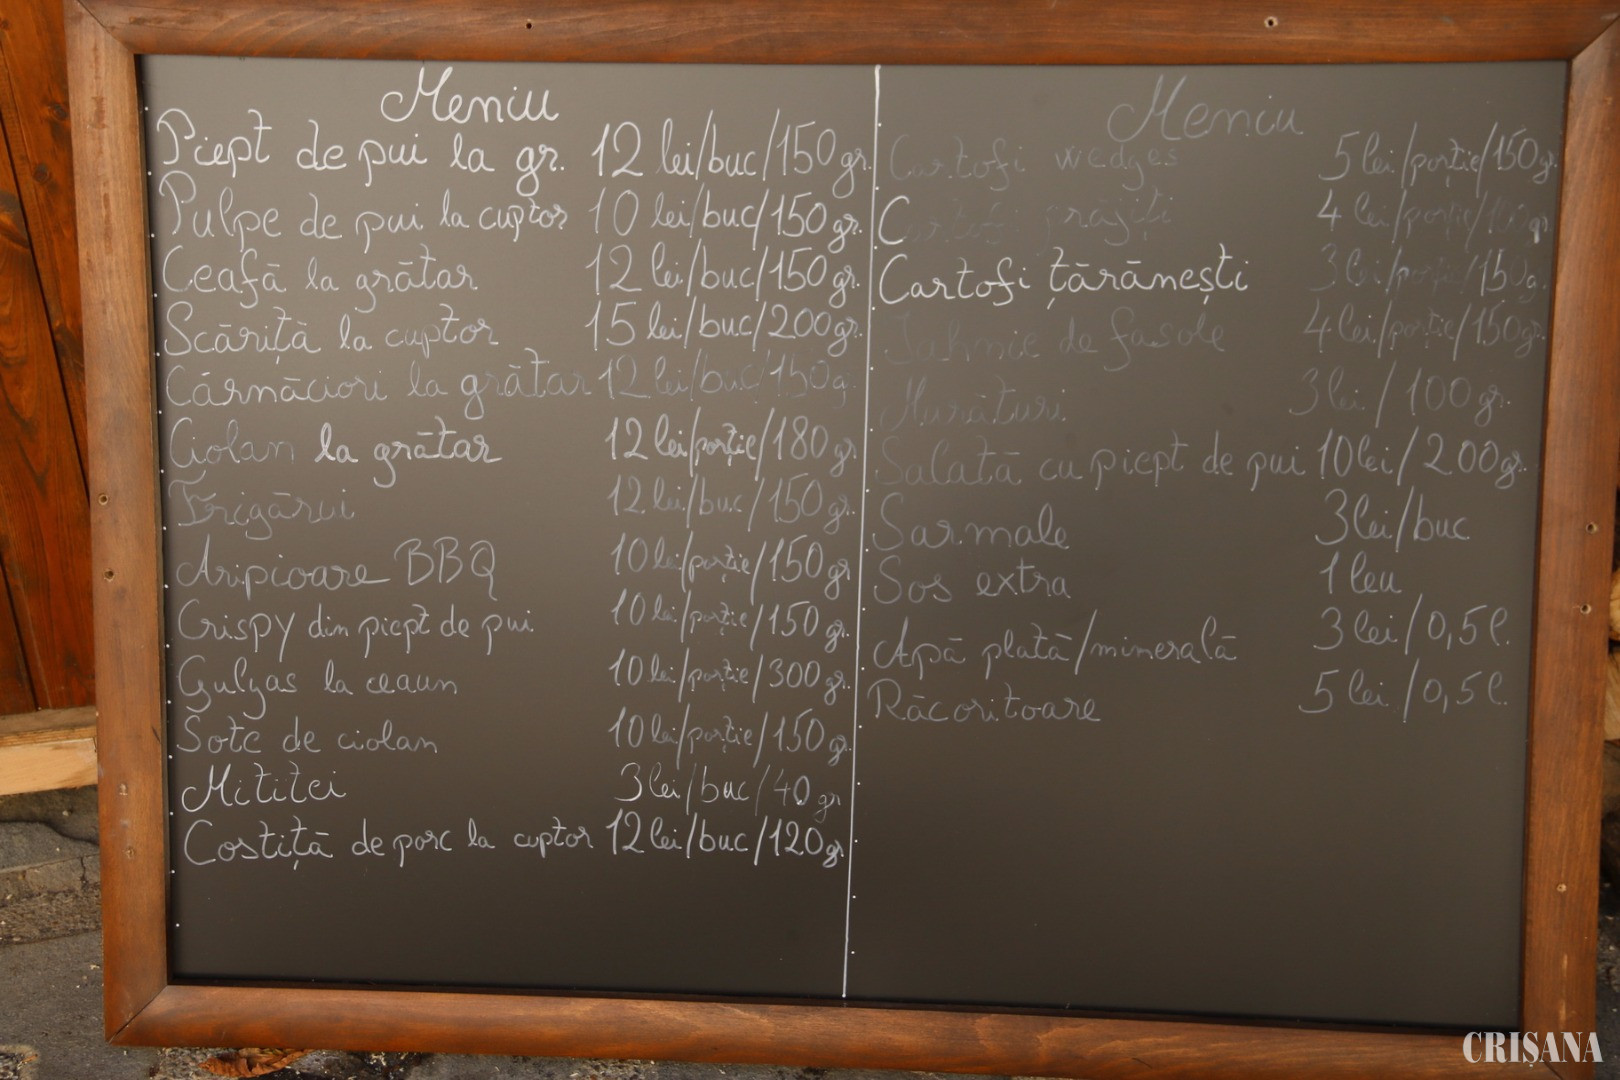 Meniu
Piept de pui la gr. 12 lei/buc/150 gr.
Pulpe de pui la cuptor 10 lei/buc/150 gr.
Ceafă la grătar 12 lei/buc/150 gr.
Scăriță la cuptor 15 lei/buc/200 gr.
Cârnăciori la grătar 12 lei/buc/150 g.
Ciolan la grătar 12 lei/porție/180 gr.
Frigărui 12 lei/buc/150 gr.
Aripioare BBQ 10 lei/porție/150 gr.
Crispy din piept de pui 10 lei/porție/150 gr.
Gulyas la ceaun 10 lei/porție/300 gr.
Sote de ciolan 10 lei/porție/150 gr.
Mititei 3 lei/buc/40 gr
Costiță de porc la cuptor 12 lei/buc/120 gr.
Meniu
Cartofi wedges 5 lei/porție/150 gr.
Cartofi prăjiți 4 lei/porție/ gr.
Cartofi țărănești 3 lei/porție/150 g.
Iahnie de fasole 4 lei/porție/150 gr.
Murături 3 lei/100 gr.
Salată cu piept de pui 10 lei/200 gr.
Sarmale 3 lei/buc
Sos extra 1 leu
Apă plată/minerală 3 lei/0,5 l.
Răcoritoare 5 lei/0,5 l.
CRIȘANA